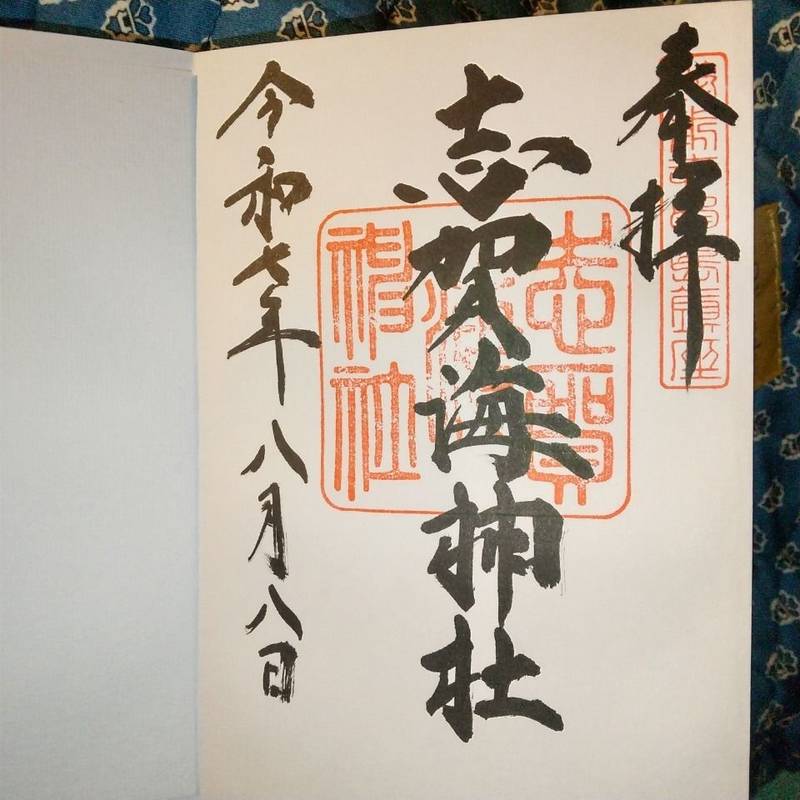 奉拝
志賀海神社
令和七年八月八日
志賀海神社